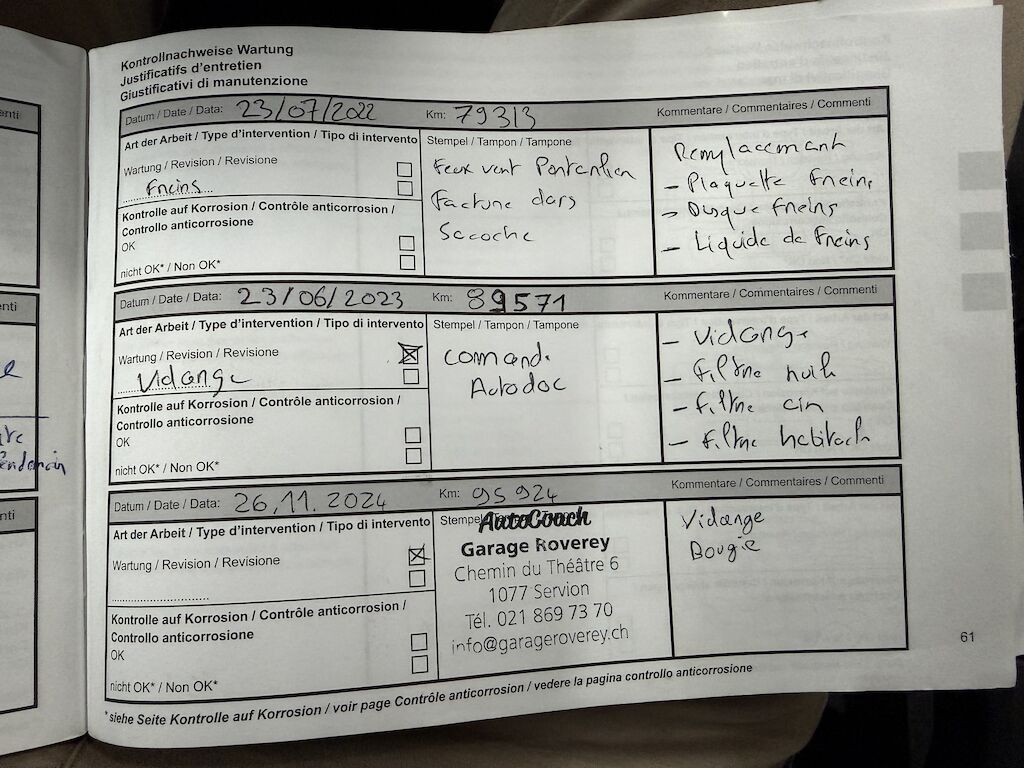 Kontrollnachweise Wartung
Justificatifs d'entretien
Giustificativi di manutenzione
Datum / Date / Data: 23/07/2022 Km: 79313 Kommentare / Commentaires / Commenti
Art der Arbeit / Type d'intervention / Tipo di intervento
Wartung / Revision / Revisione
Freins
Kontrolle auf Korrosion / Contrôle anticorrosion /
Controllo anticorrosione
OK
nicht OK* / Non OK*
Stempel / Tampon / Tampone
Feux vert Pontarlier
Facture dans
Sacoche
Remplacemant
- Plaquette Freins
- Disque Freins
- Liquide de Freins
Datum / Date / Data: 23/06/2023 Km: 89571 Kommentare / Commentaires / Commenti
Art der Arbeit / Type d'intervention / Tipo di intervento
Wartung / Revision / Revisione
Vidange
Kontrolle auf Korrosion / Contrôle anticorrosion /
Controllo anticorrosione
OK
nicht OK* / Non OK*
Stempel / Tampon / Tampone
Comande
Autodoc
- Vidange
- Filtre huile
- Filtre air
- Filtre habitacle
Datum / Date / Data: 26.11.2024 Km: 95924 Kommentare / Commentaires / Commenti
Art der Arbeit / Type d'intervention / Tipo di intervento
Wartung / Revision / Revisione
Kontrolle auf Korrosion / Contrôle anticorrosion /
Controllo anticorrosione
OK
nicht OK* / Non OK*
Stempel / Tampon / Tampone
AutoCoach
Garage Roverey
Chemin du Théâtre 6
1077 Servion
Tél. 021 869 73 70
info@garageroverey.ch
Vidange
Bougie
* siehe Seite Kontrolle auf Korrosion / voir page Contrôle anticorrosion / vedere la pagina controllo anticorrosione
61